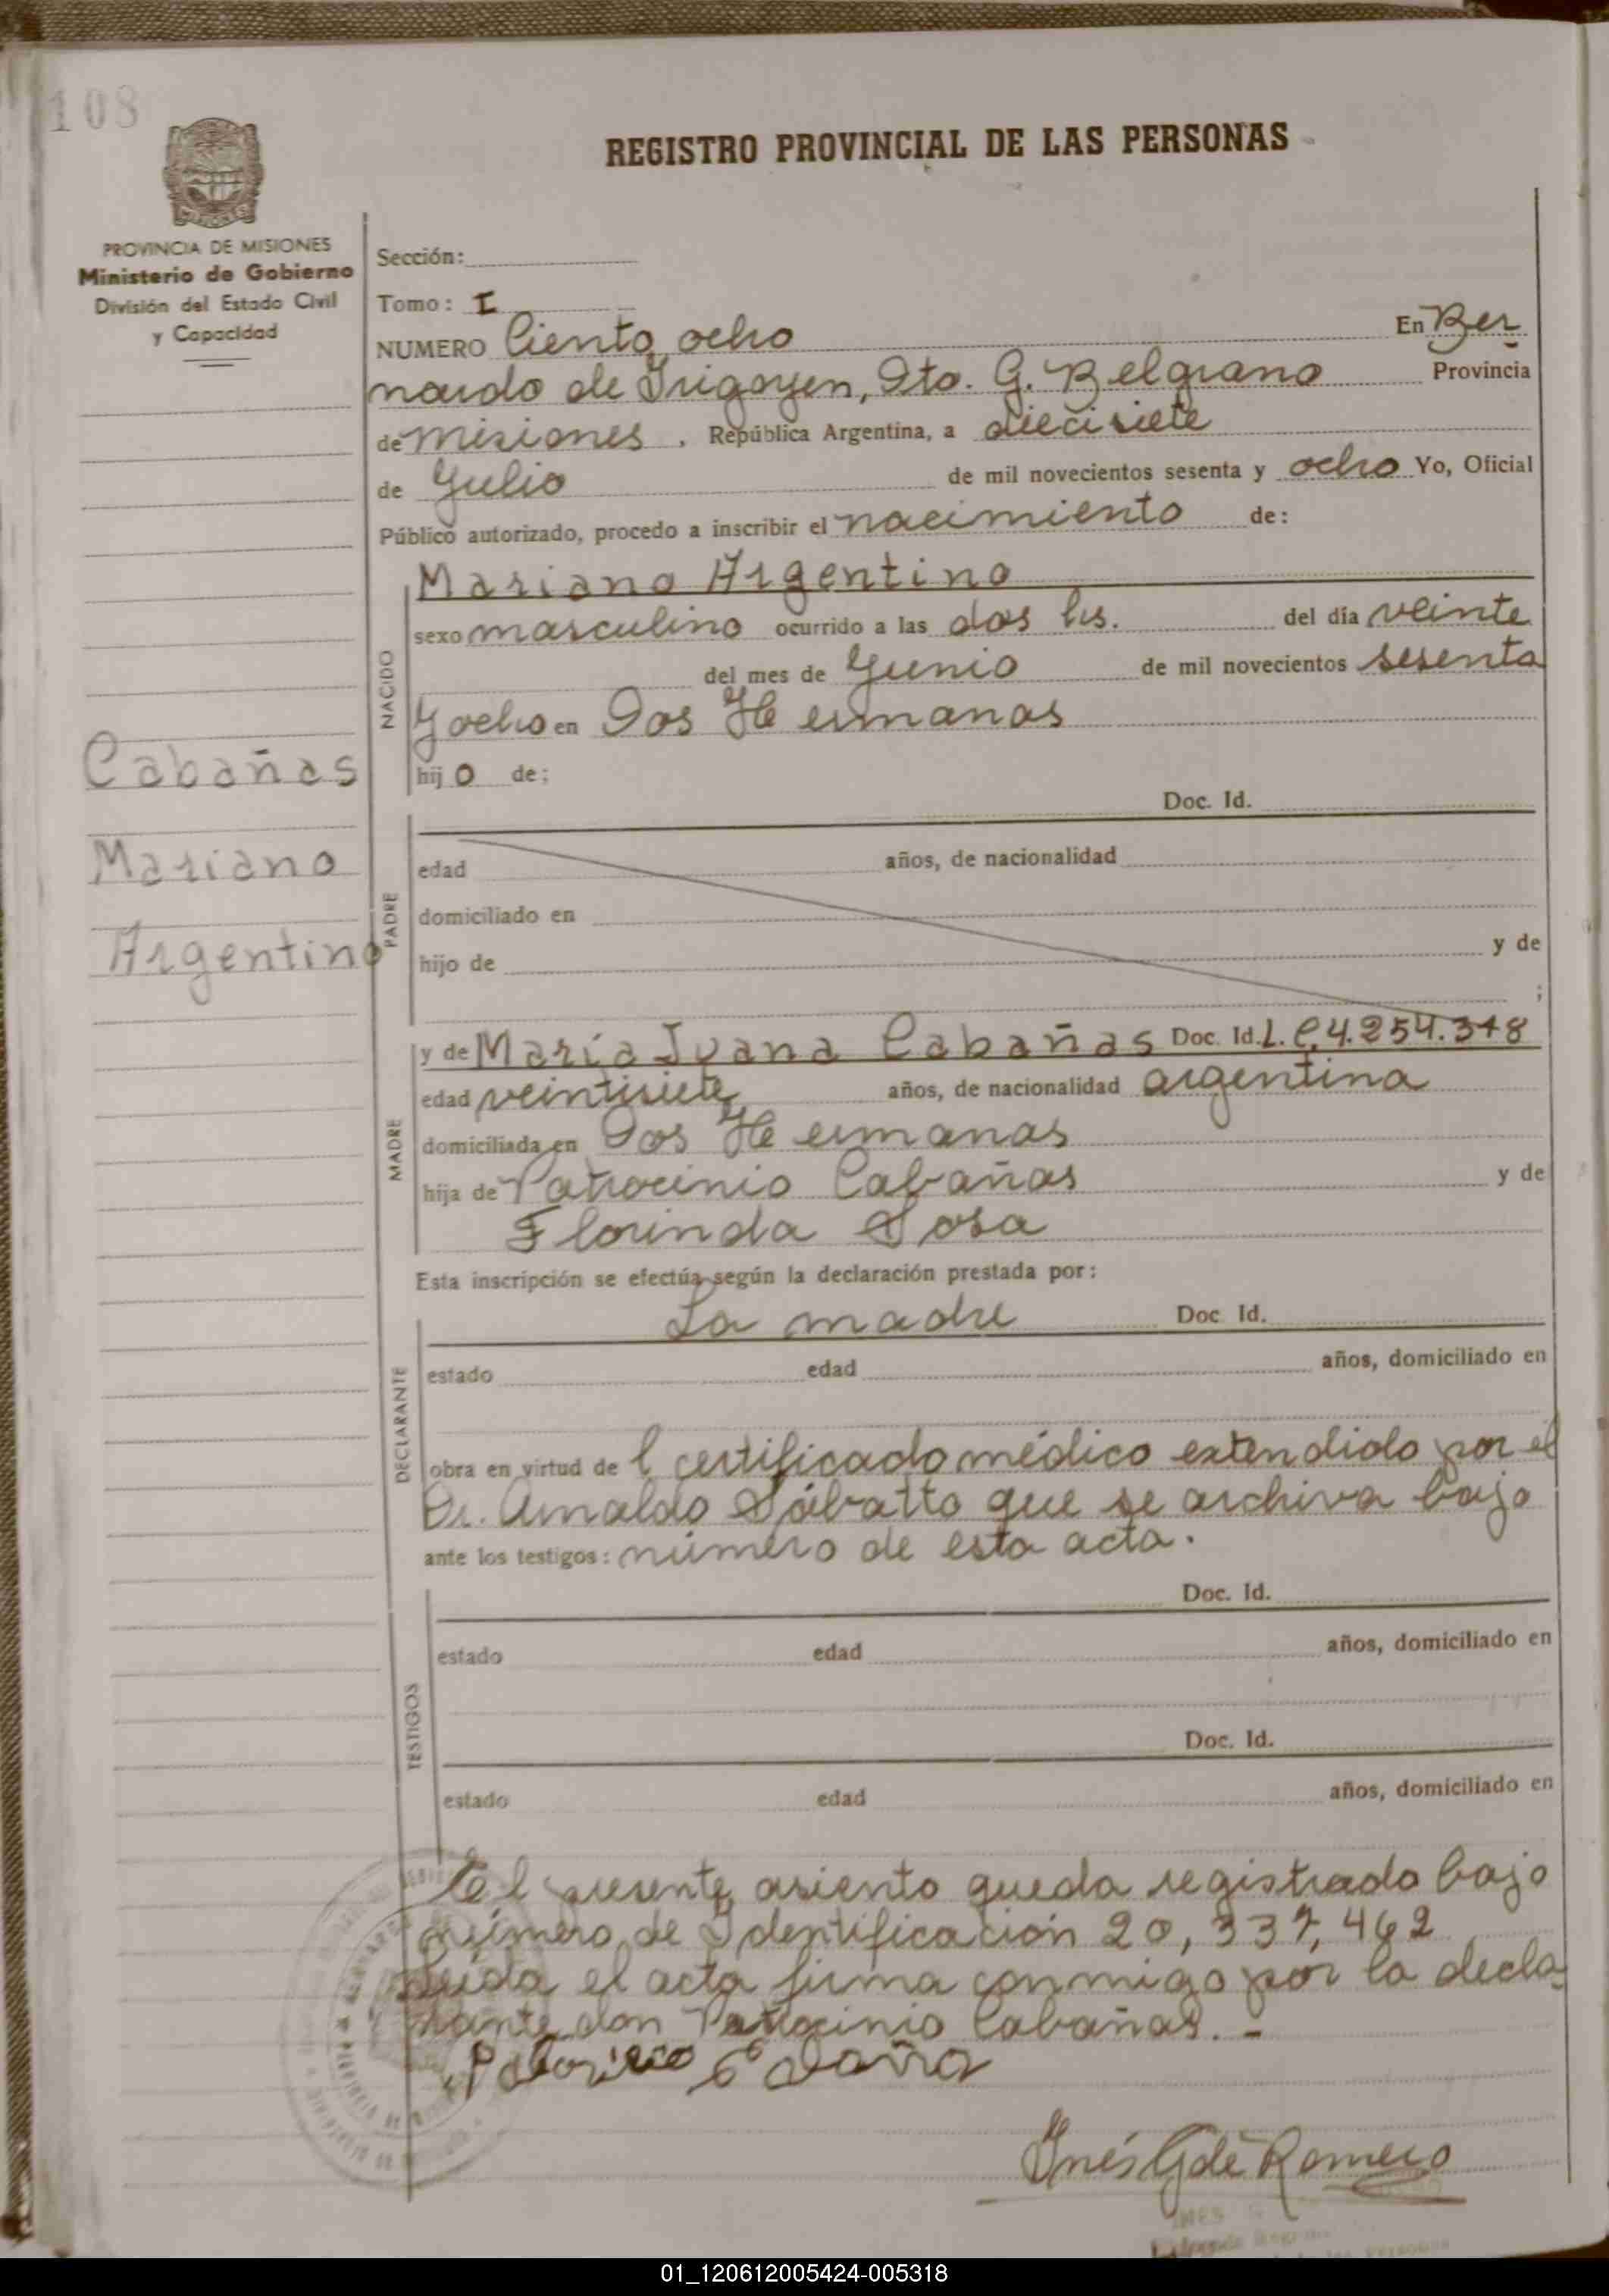 108
REGISTRO PROVINCIAL DE LAS PERSONAS
PROVINCIA DE MISIONES
Ministerio de Gobierno
División del Estado Civil
y Capacidad
Sección:
Tomo: I
NUMERO Ciento ocho En Ber
nardo de Irigoyen, Dto. G. Belgrano Provincia
de Misiones, República Argentina, a diecisiete
de Julio de mil novecientos sesenta y ocho Yo, Oficial
Público autorizado, procedo a inscribir el nacimiento de:
Mariano Argentino
sexo masculino ocurrido a las dos hs. del día veinte
del mes de Junio de mil novecientos sesenta
y ocho en Dos Hermanas
hijo de;
NACIDO
Cabañas
Mariano
Argentino
Doc. Id.
edad años, de nacionalidad
domiciliado en
hijo de y de
;
PADRE
y de María Juana Cabañas Doc. Id. L.C. 4.254.348
edad veintisiete años, de nacionalidad argentina
domiciliada en Dos Hermanas
hija de Patrocinio Cabañas y de
Florinda Sosa
MADRE
Esta inscripción se efectúa según la declaración prestada por:
La madre Doc. Id.
estado edad años, domiciliado en
DECLARANTE
obra en virtud del certificado médico extendido por el
Dr. Arnaldo Sábatto que se archiva bajo
ante los testigos: número de esta acta.
Doc. Id.
estado edad años, domiciliado en
TESTIGOS
Doc. Id.
estado edad años, domiciliado en
El presente asiento queda registrado bajo
número de Identificación 20,337,462
Leída el acta firma conmigo por la decla-
rante don Patrocinio Cabañas.-
Inés G de Romero
INES
01_120612005424-005318